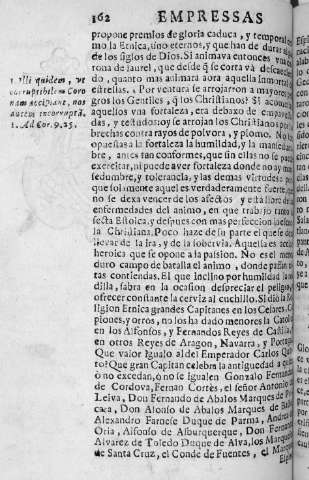 162 EMPRESSAS
propone premios de gloria caduca, y temporal
mo la Etnica, sino eternos, y que han de durar
de los siglos de Dios. Si animava entonces
rona de laurel, que desde q̃ se corta và descaeciendo
do, quanto mas animara aora aquella inmortal
estrellas. Por ventura se arrojaron a mayores
gros los Gentiles, q̃ los Christianos? Si
aquellos una fortaleza, era debaxo de empavesadas
das, y testudos; oy se arrojan los Christianos por las
brechas contra rayos de polvora, y plomo. No
opuestas a la fortaleza la humildad, y la
bre, antes tan conformes, que sin ellas no se puede
exercitar, ni puede aver fortaleza donde no ay
sedumbre, y tolerancia, y las demas virtudes
que solamente aquel es verdaderamente fuerte,
no se dexa vencer de los afectos, y està libre de las
enfermedades del animo, en que trabajò tanto la
secta Estoica, y despues con mas perfeccion la
Christiana. Poco haze de su parte el que se dexa
llevar de la ira, y de la sobervia. Aquella es accion
heroica que se opone a la passion. No es el menos
duro campo de batalla el animo, donde passan
tas contiendas. El que inclinò por humildad la
dilla, sabrà en la ocasion despreciar el peligro,
ofrecer constante la cerviz al cuchillo. Si diò la Re
ligion Etnica grandes Capitanes en los Cesares,
piones, y otros, no los ha dado menores la Catolica
en los Alfonsos, y Fernandos Reyes de Castilla,
en otros Reyes de Aragon, Navarra, y Portugal.
Que valor igualò al del Emperador Carlos Quinto
to? Que gran Capitan celebra la antiguedad a quien
ò no excedan, ò no se igualen Gonzalo Fernandez
de Cordova, Fernan Cortès, el señor Antonio de
Leiva, Don Fernando de Abalos Marques de Pescara
cara, Don Alonso de Abalos Marques de Basto,
Alexandro Farnese Duque de Parma, Andrea de
Oria, Alfonso de Alburquerque, Don Fernando
Alvarez de Toledo Duque de Alva, los Marqueses
de Santa Cruz, el Conde de Fuentes, el Marques
1. Illi quidem, ut
corruptibilem Coro
nam accipiant, nos
autem incorruptã.
1. Ad Cor. 9. 25.